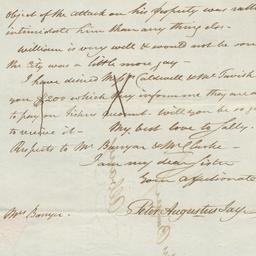 object of the attack on his property was rather
intimidate him than any thing else-
William is very well & would not be sorry
the City was a little more gay-
I have desired Caldwell & McTavish
you £200 which they informe me they are
to pay on Fishers account. Will you be so
to receive it- My best love to Sally.
Respects to Mr Banyar & Mr Clarke-
I am my dear Sister
Your affectionate
Mrs Banyer. Peter Augustus Jay